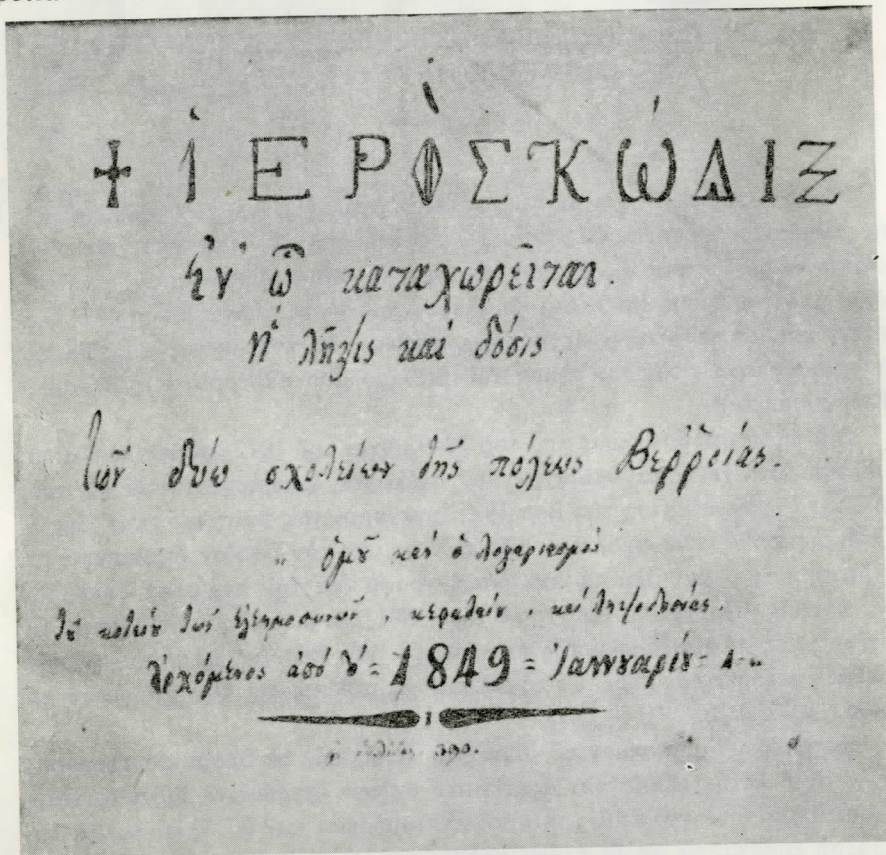 + ἹΕΡῸΣ ΚΏΔΙΞ
Ἐν ᾧ καταχωρεῖται.
Ἡ λῆψις καὶ δόσις.
τῶν δύω σχολείων τῆς πόλεως Βεῤῥοίας.
„ ὁμοῦ καὶ ὁ λογαρισμὸς
τοῦ κοινοῦ τῶν ἐλεημοσυνῶν, κεφαλαίου, καὶ ληψοδοσίας.
ἀρχόμενος ἀπὸ = 1849 = Ἰαννουαρίου = 1 = „